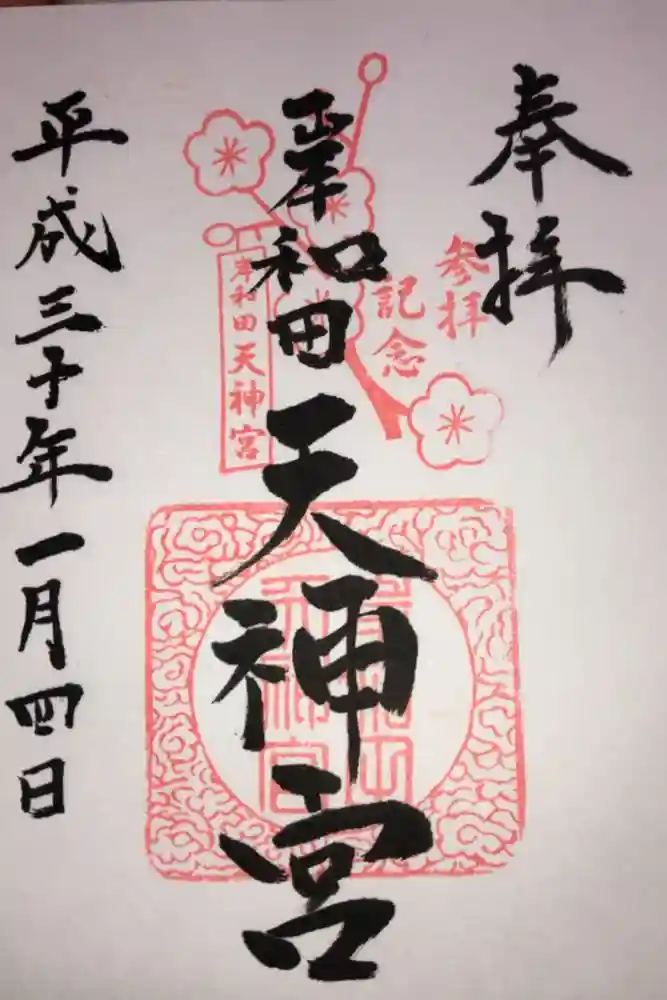 奉拝
参拝
記念
岸和田天神宮
岸和田天神宮
平成三十年一月四日